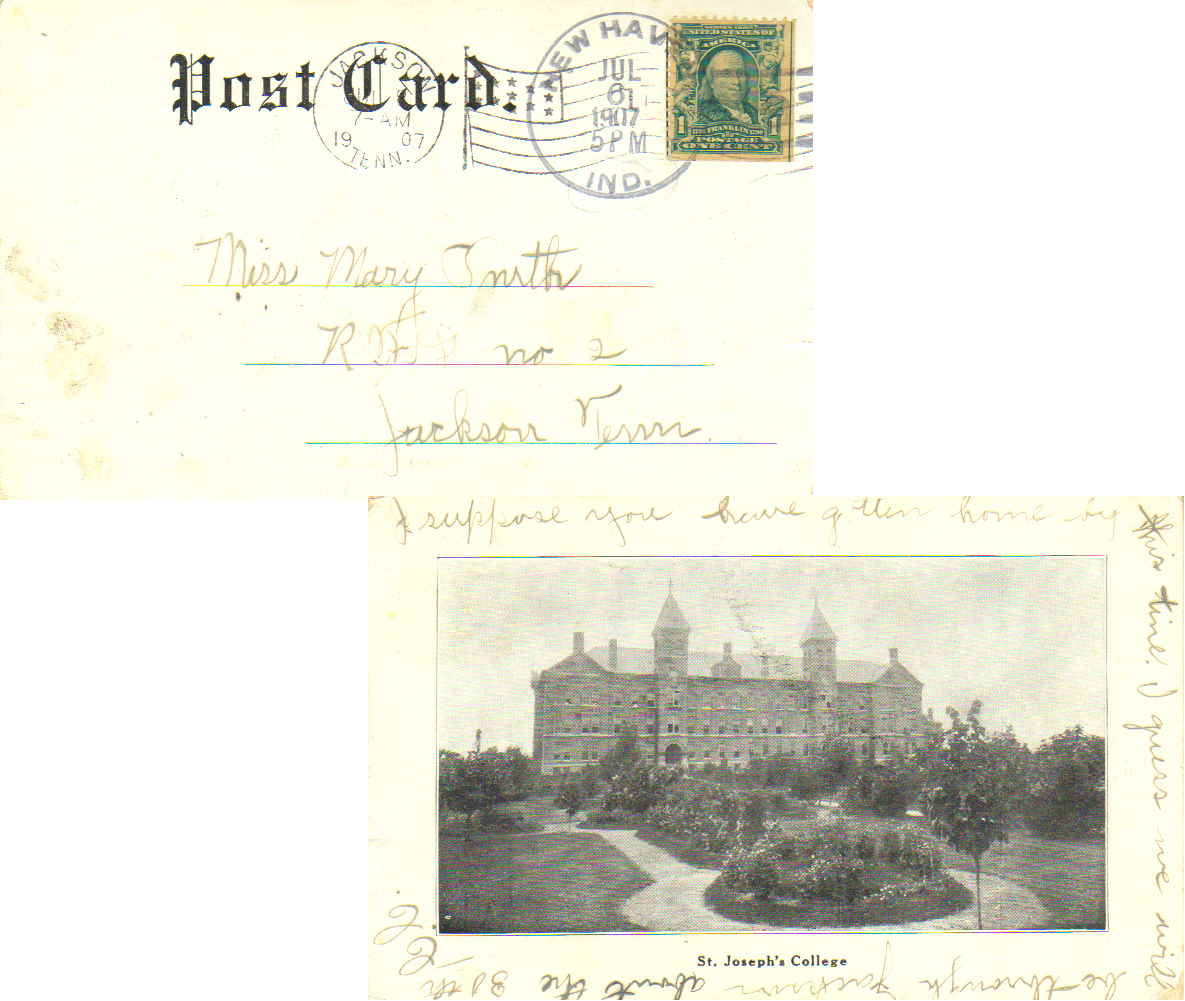 Post Card.
JACKSON
7-AM
19 07
TENN.
NEW HAV
JUL
6
1907
5PM
IND.
UNITED STATES OF
AMERICA
1 FRANKLIN 1
POSTAGE
ONE CENT
Miss Mary Smith
R F D no 2
Jackson Tenn.
I suppose you have gotten home by
this time. I guess we will
be through Jackson about the 30th
St. Joseph's College